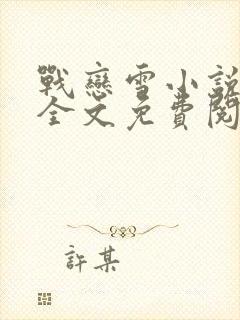 戰戀雪小說
全文免費閱
許某